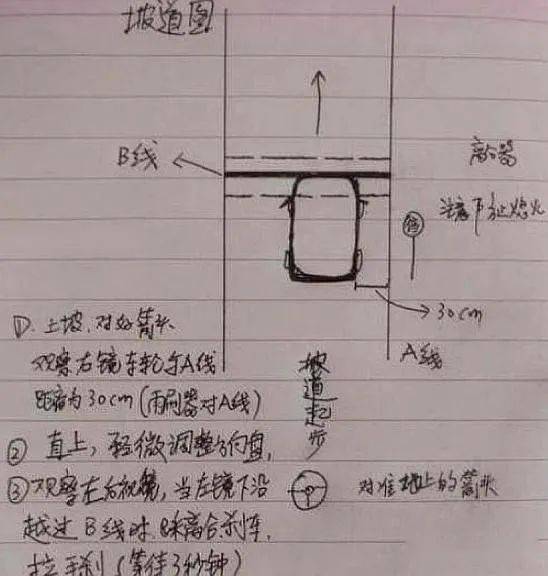 坡道图
B线
离合器
注意下征熄火
停
30cm
A线
①上坡,对好箭头
观察右镜车轮与A线
距离为30cm(雨刷器对A线)
坡道起步
②直上,轻微调整方向盘,
③观察左后视镜,当左镜下沿
对准地上的箭头
越过B线时,踩离合刹车,
拉手刹(等待3秒钟)